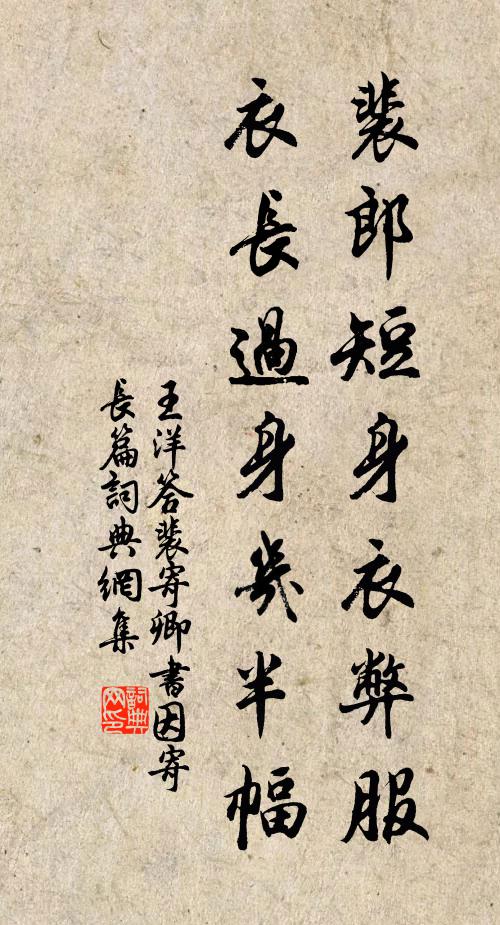 裴郎短身衣弊服
衣長過身幾半幅
王洋答裴寄卿書因寄
長篇詞典網集
詞典
网印